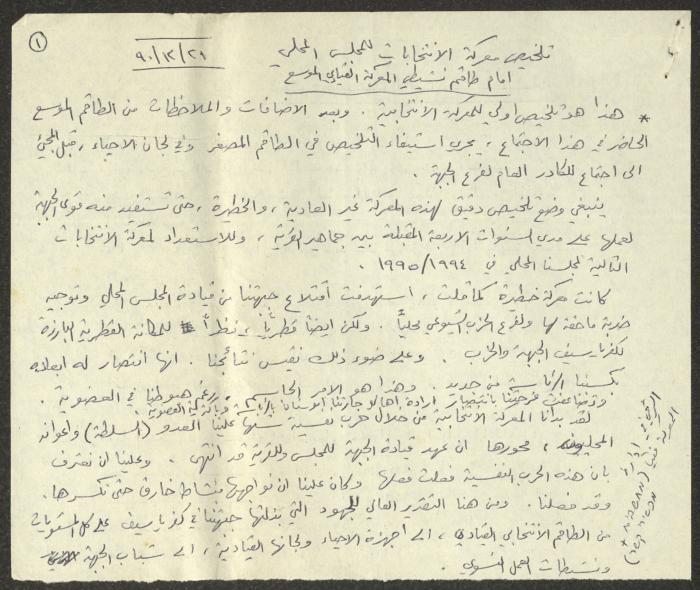 ١
٩٠/١٢/٢٩
تلخيص معركة الانتخابات للمجلس المحلي
امام طاقم نشيطي المعركة القيادي الموسع
* هذا هو تلخيص اولي للمعركة الانتخابية . وبعد الاضافات والملاحظات من الطاقم الموسع
الحاضر في هذا الاجتماع ، يجري استيفاء التلخيص في الطاقم المصغر وفي لجان الاحياء ، قبل المجيء
الى اجتماع للكادر العام لفرع الجبهة .
ينبغي وضع تلخيص دقيق لهذه المعركة غير العادية ، والخطيرة ، حتى تستفيد منه قوى الجبهة
لعملها على مدى السنوات الاربعة المقبلة بين جماهير القرية ، وللاستعداد لمعركة الانتخابات
التالية لمجلسنا المحلي في ١٩٩٤/١٩٩٥ .
كانت معركة خطيرة كما قلت ، استهدفت اقتلاع جبهتنا من قيادة المجلس المحلي وتوجيه
ضربة ماحقة لها ولفرع الحزب الشيوعي محلياً . ولكن ايضاً قطرياً ، نظراً للمكانة القطرية البارزة
لكفرياسيف الجبهة والحزب . وعلى ضوء ذلك نقيس نتائجنا . انها انتصار له ابعاده
بكسبنا الرئاسة من جديد . وهذا هو الامر الحاسم ، رغم هبوطنا في العضوية .
وتضاعفت فرحتنا بانتصار ارادة اهالي
لقد بدأنا المعركة الانتخابية من خلال حرب نفسية شنها علينا العدو (السلطة) واعوانه
المحليون ، محورها ان عهد قيادة الجبهة للمجلس وللقرية قد انتهى . وعلينا ان نعترف
بان هذه الحرب النفسية فعلت فعلها وكان علينا ان نواجهها بنشاط خارق حتى نكسرها .
وقد فعلنا . ومن هنا التقدير العالي للجهود التي بذلتها جبهتنا في كفرياسيف على كل المستويات
من الطاقم الانتخابي القيادي ، الى اجهزة الاحياء ولجانها القيادية ، الى شباب الجبهة
ونشيطات العمل النسوي .